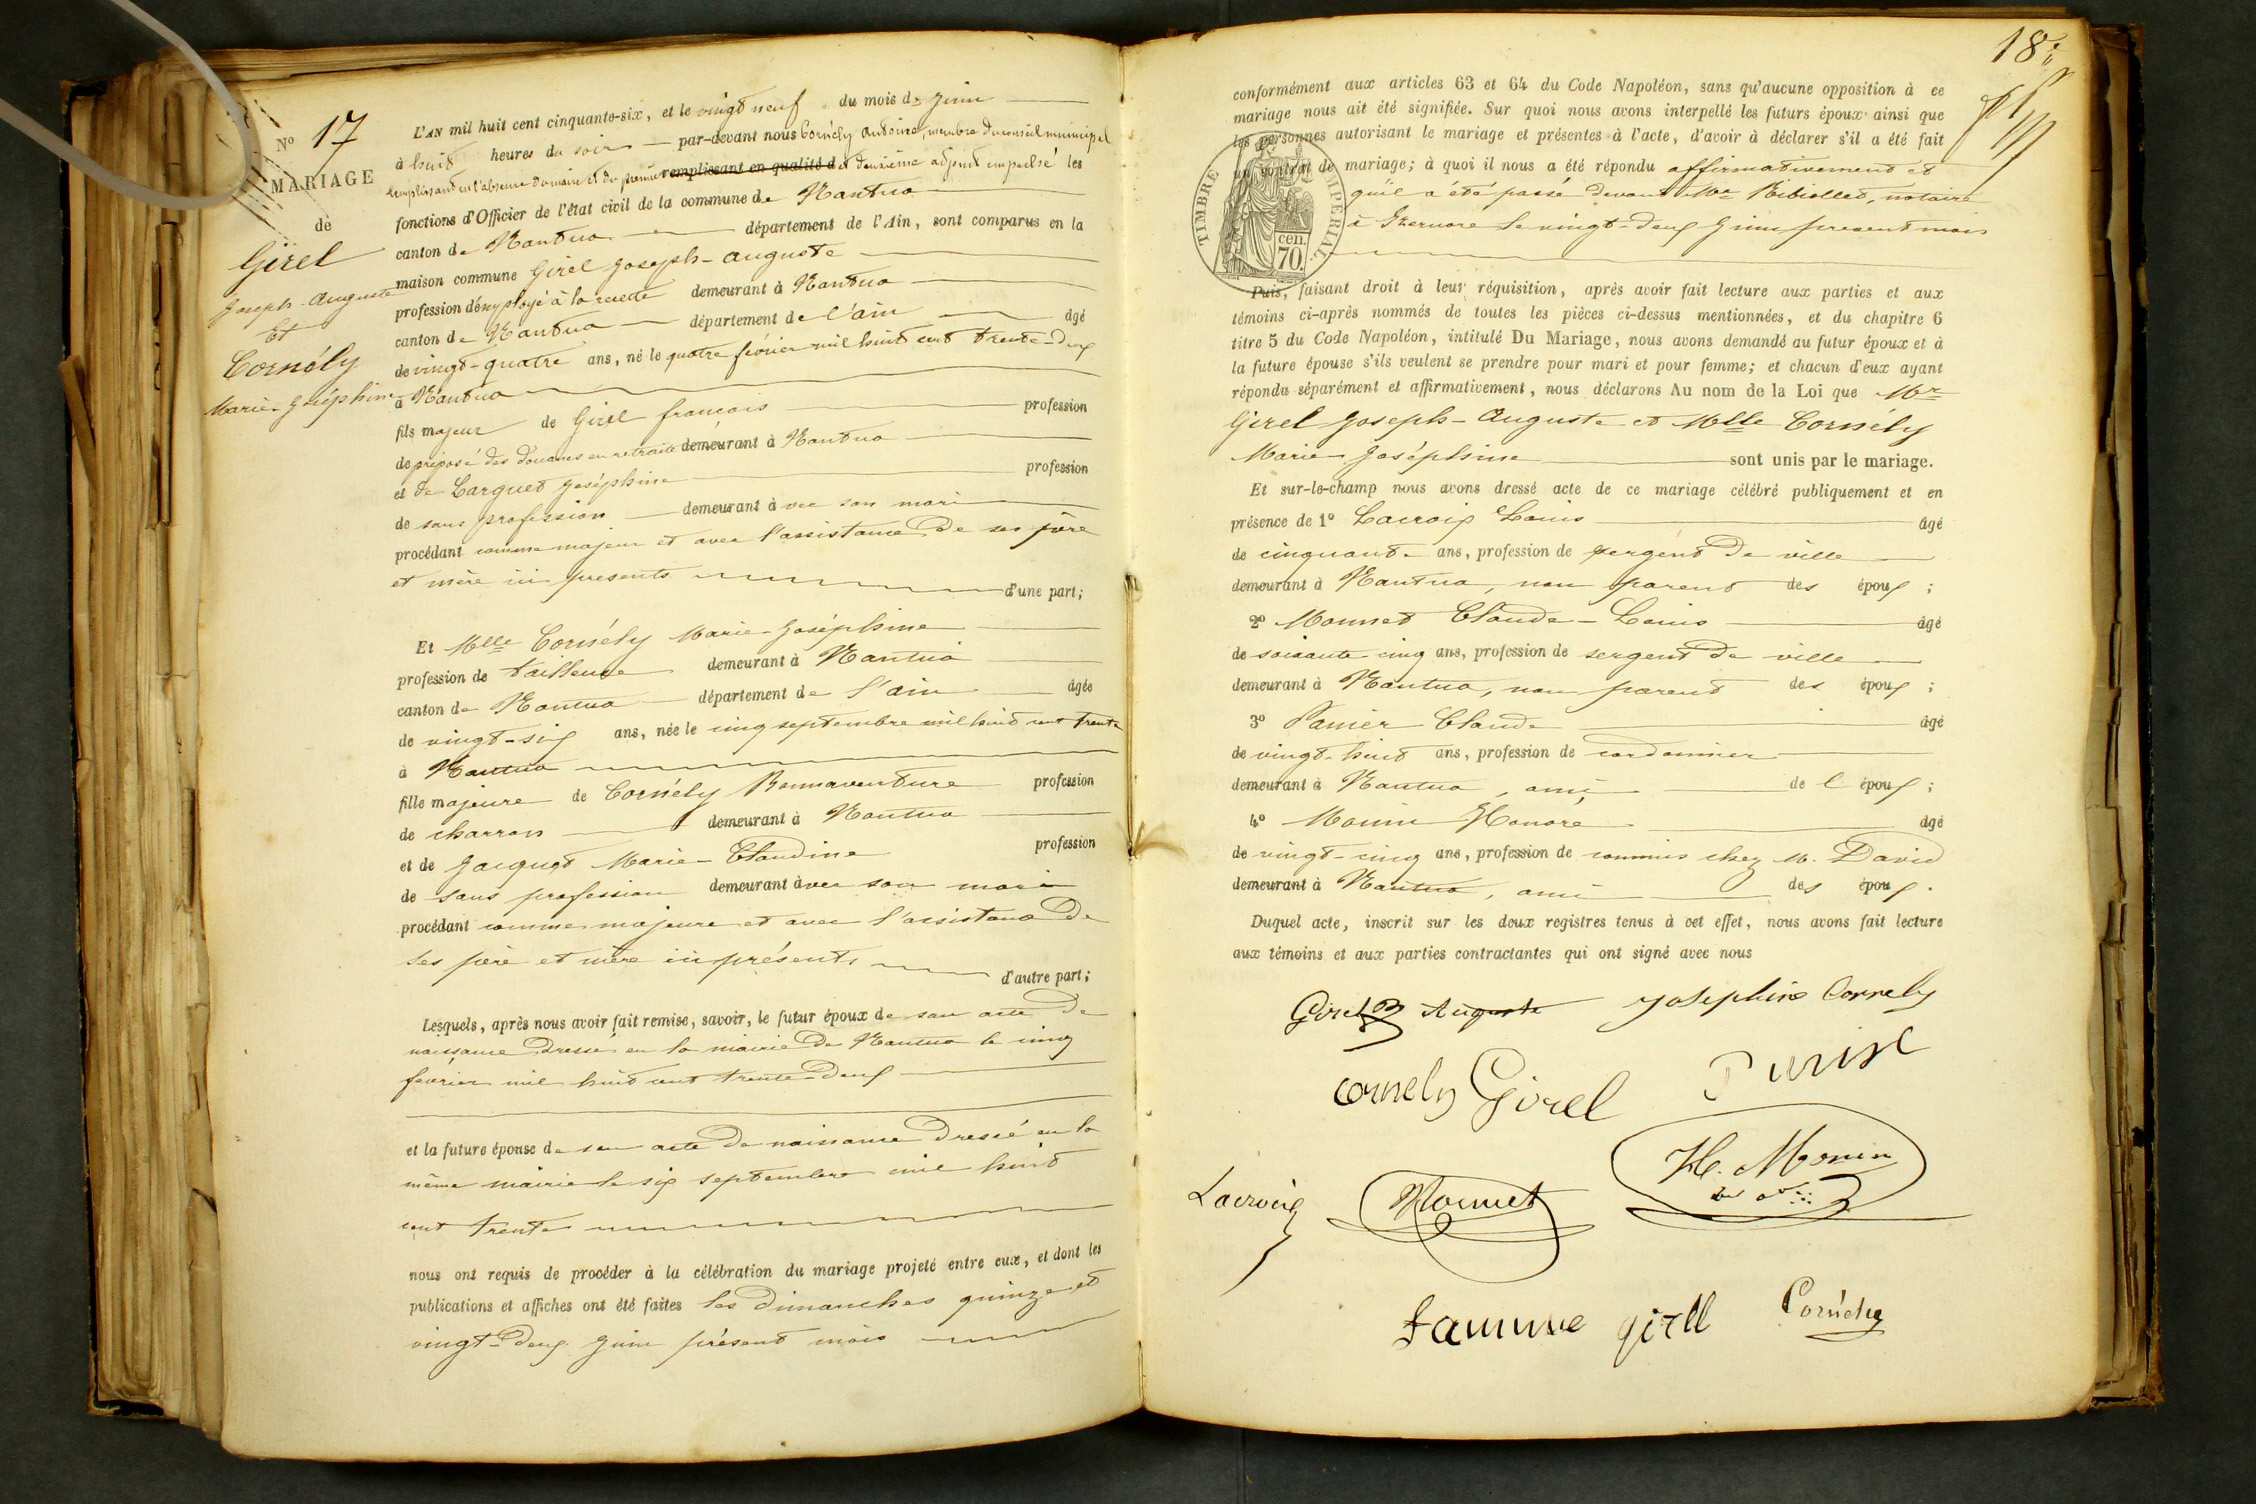 N° 17
MARIAGE
de
Girel
Joseph-Auguste
Et
Cornély
Marie-Joséphine
L'AN mil huit cent cinquante-six, et le vingt neuf du mois de Juin
à huit heures du soir par-devant nous Cornély Antoine, membre du conseil municipal
remplissant en l'absence du maire et du premier remplissant en qualité d et deuxième adjoint empêché les
fonctions d'Officier de l'état civil de la commune de Nantua
canton de Nantua département de l'Ain, sont comparus en la
maison commune Girel Joseph-Auguste
profession d'employé à la recette demeurant à Nantua
canton de Nantua département de l'ain âgé
de vingt-quatre ans, né le quatre février mil huit cent trente-deux
à Nantua
fils majeur de Girel francois profession
de préposé des douanes en retraite demeurant à Nantua
et de Carquet Joséphine profession
de sans profession demeurant avec son mari
procédant comme majeur et avec l'assistance de ses père
et mère ici presents d'une part;
Et Mlle Cornély Marie-Joséphine
profession de tailleuse demeurant à Nantua
canton de Nantua département de l'ain âgée
de vingt-six ans, née le cinq septembre mil huit cent trente
à Nantua
fille majeure de Cornély Bonnaventure profession
de charron demeurant à Nantua
et de Jacquet Marie-Claudine profession
de sans profession demeurant avec son mari
procédant comme majeure et avec l'assistance de
ses père et mère ici présents d'autre part;
Lesquels, après nous avoir fait remise, savoir, le futur époux de son acte de
naissance dressé en la mairie de Nantua le cinq
fevrier mil huit cent trente-deux
et la future épouse de son acte de naissance dressé en la
même mairie le six septembre mil huit
cent trente
nous ont requis de procéder à la célébration du mariage projeté entre eux, et dont les
publications et affiches ont été faites les dimanches quinze et
vingt-deux Juin présent mois
18
conformément aux articles 63 et 64 du Code Napoléon, sans qu'aucune opposition à ce
mariage nous ait été signifiée. Sur quoi nous avons interpellé les futurs époux ainsi que
les personnes autorisant le mariage et présentes à l'acte, d'avoir à déclarer s'il a été fait
un contrat de mariage; à quoi il nous a été répondu affirmativement et
qu'il a été passé devant Me Ribiollet, notaire
à Izernore le vingt-deux Juin present mois
TIMBRE IMPERIAL
cen.
70.
Puis, faisant droit à leur réquisition, après avoir fait lecture aux parties et aux
témoins ci-après nommés de toutes les pièces ci-dessus mentionnées, et du chapitre 6
titre 5 du Code Napoléon, intitulé Du Mariage, nous avons demandé au futur époux et à
la future épouse s'ils veulent se prendre pour mari et pour femme; et chacun d'eux ayant
répondu séparément et affirmativement, nous déclarons Au nom de la Loi que Mr
Girel Joseph-Auguste et Mlle Cornély
Marie-Joséphine sont unis par le mariage.
Et sur-le-champ nous avons dressé acte de ce mariage célébré publiquement et en
présence de 1° Lacroix Louis âgé
de cinquante ans, profession de sergent de ville
demeurant à Nantua, non parent des époux ;
2° Monnet Claude-Louis âgé
de soixante cinq ans, profession de sergent de ville
demeurant à Nantua, non parent des époux ;
3° Panier Claude âgé
de vingt-huit ans, profession de cordonnier
demeurant à Nantua, ami de l époux ;
4° Monin Honoré âgé
de vingt-cinq ans, profession de commis chez M. David
demeurant à Nantua, ami des époux.
Duquel acte, inscrit sur les doux registres tenus à cet effet, nous avons fait lecture
aux témoins et aux parties contractantes qui ont signé avec nous
Girel Auguste Josephine Cornely
Cornely Girel
H. Monin
Lacroix Monnet
famme girll Cornély